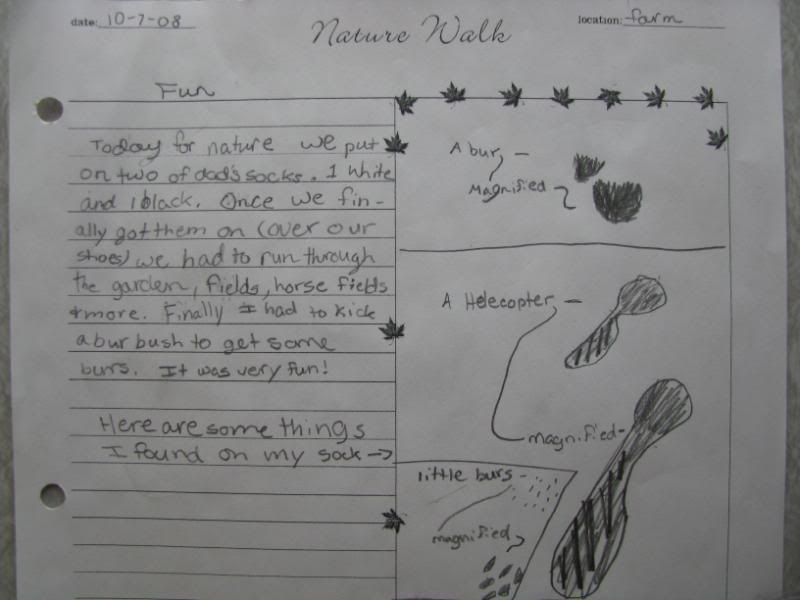 date: 10-7-08
Nature Walk
location: farm
Fun
Today for nature we put
on two of dad's socks. 1 white
and 1 black. Once we fin-
ally got them on (over our
shoes) we had to run through
the garden, fields, horse fields
+more. Finally I had to kick
a bur bush to get some
burs. It was very fun!
Here are some things
I found on my sock →
A bur –
Magnified
A Helecopter –
magnified-
little burs -
magnified